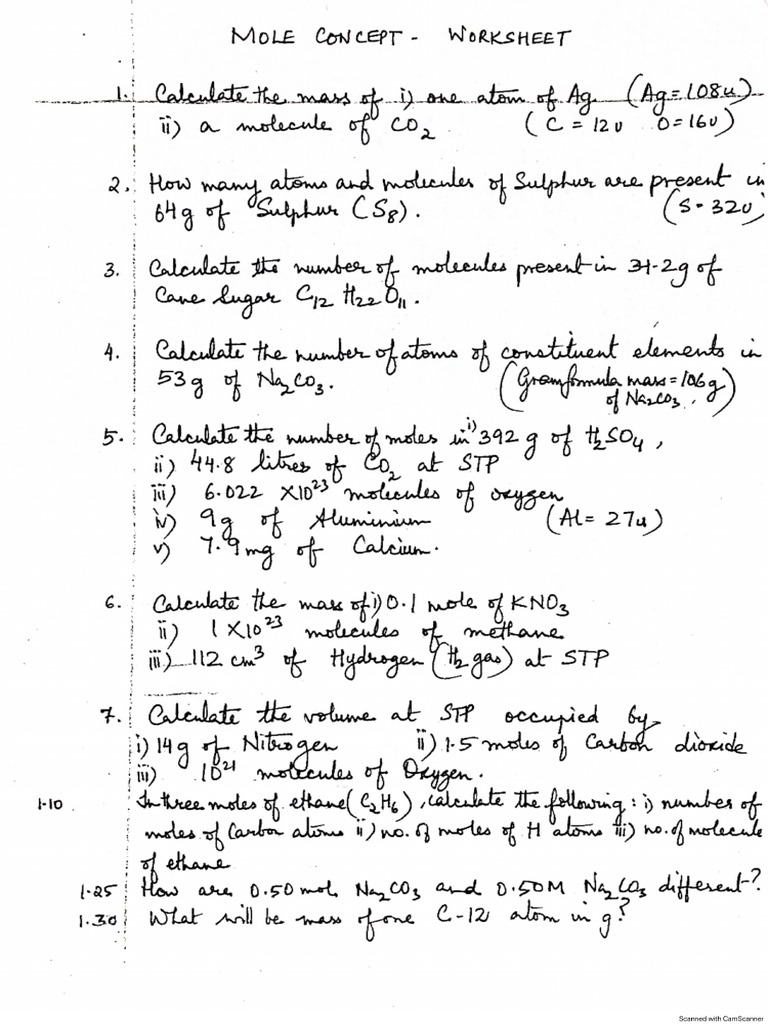 MOLE CONCEPT - WORKSHEET
1. Calculate the mass of i) one atom of Ag (Ag=108u)
ii) a molecule of CO2 (C = 12u O=16u)
2. How many atoms and molecules of Sulphur are present in
64g of Sulphur (S8). (S-32u)
3. Calculate the number of molecules present in 34.2g of
Cane Sugar C12 H22 O11.
4. Calculate the number of atoms of constituent elements in
53g of Na2CO3. (Gram formula mass=106g
of Na2CO3.)
5. Calculate the number of moles in i) 392 g of H2SO4,
ii) 44.8 litres of CO2 at STP
iii) 6.022 X10^23 molecules of oxygen
iv) 9g of Aluminium (Al= 27u)
v) 7.9mg of Calcium.
6. Calculate the mass of i) 0.1 mole of KNO3
ii) 1 X10^23 molecules of methane
iii) 112 cm^3 of Hydrogen (H2 gas) at STP
7. Calculate the volume at STP occupied by
i) 14g of Nitrogen ii) 1.5 moles of Carbon dioxide
iii) 10^21 molecules of Oxygen.
1.10 In three moles of ethane (C2H6), calculate the following: i) number of
moles of Carbon atoms ii) no. of moles of H atoms iii) no. of molecule
of ethane
1.25 How are 0.50 mol Na2CO3 and 0.50M Na2CO3 different?
1.30 What will be mass of one C-12 atom in g?
Scanned with CamScanner